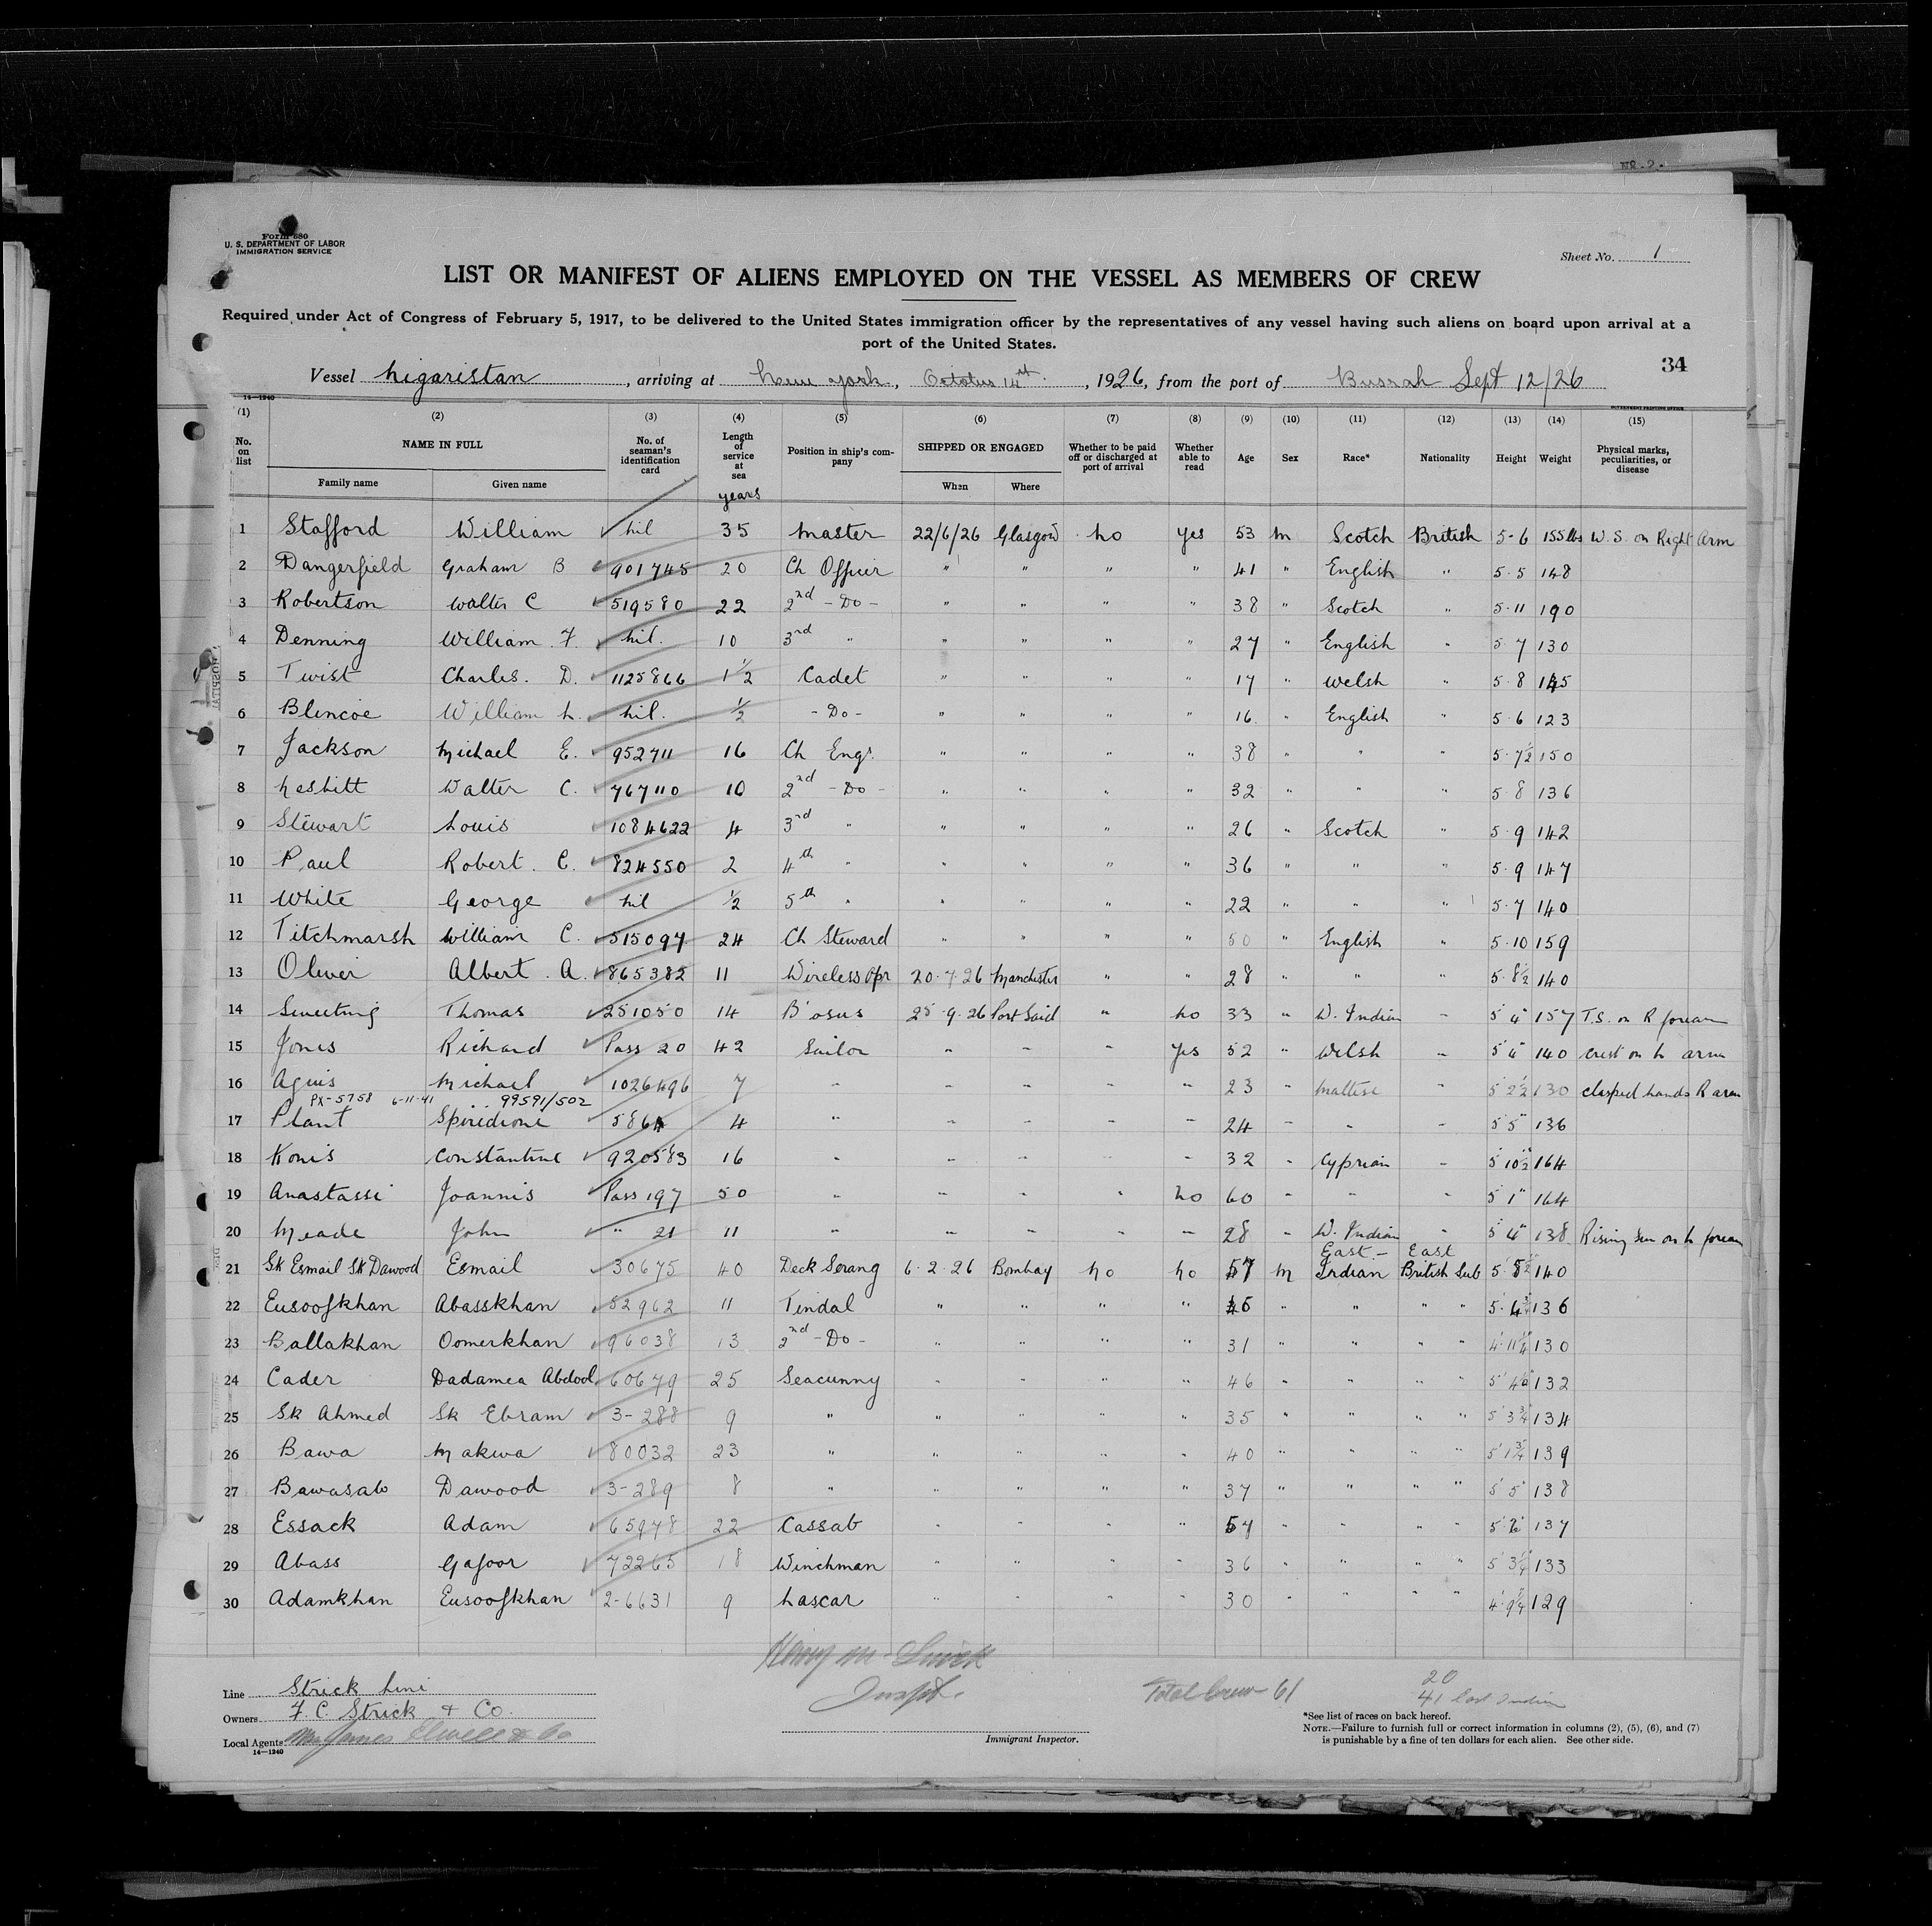 Form 680
U. S. DEPARTMENT OF LABOR
IMMIGRATION SERVICE
Sheet No. 1
LIST OR MANIFEST OF ALIENS EMPLOYED ON THE VESSEL AS MEMBERS OF CREW
Required under Act of Congress of February 5, 1917, to be delivered to the United States immigration officer by the representatives of any vessel having such aliens on board upon arrival at a
port of the United States.
34
Vessel Nigaristan, arriving at New York, October 14th, 1926, from the port of Busrah Sept 12/26
14—1240
(1) (2) (3) (4) (5) (6) (7) (8) (9) (10) (11) (12) (13) (14) (15)
No. on list NAME IN FULL No. of seaman's identification card Length of service at sea Position in ship's company SHIPPED OR ENGAGED Whether to be paid off or discharged at port of arrival Whether able to read Age Sex Race* Nationality Height Weight Physical marks, peculiarities, or disease
Family name Given name years When Where
1 Stafford William Nil 35 Master 22/6/26 Glasgow No Yes 53 M Scotch British 5-6 155 lbs W.S. on Right Arm
2 Dangerfield Graham B 901745 20 Ch Officer " " " " 41 " English " 5.5 148
3 Robertson Walter C 519580 22 2nd - Do - " " " " 38 " Scotch " 5.11 190
4 Denning William F. Nil. 10 3rd " " " " " 27 " English " 5.7 130
5 Twist Charles. D. 1125866 1½ Cadet " " " " 17 " Welsh " 5.8 145
6 Blincoe William N. Nil. ½ - Do - " " " " 16 " English " 5.6 123
7 Jackson Michael E. 952711 16 Ch Engr. " " " " 38 " " " 5.7½ 150
8 Nesbitt Walter C. 767110 10 2nd - Do - " " " " 32 " " " 5.8 136
9 Stewart Louis 1084622 4 3rd " " " " " 26 " Scotch " 5.9 142
10 Paul Robert. C. 824550 2 4th " " " " " 36 " " " 5.9 147
11 White George Nil ½ 5th " " " " " 22 " " " 5.7 140
12 Titchmarsh William C. 515097 24 Ch Steward " " " " 50 " English " 5.10 159
13 Oliver Albert. A. 865382 11 Wireless Opr 20.7.26 Manchester " " 28 " " " 5.8½ 140
14 Sweeting Thomas 251050 14 B'osus 25.9.26 Port Said " No 33 " W. Indian " 5'4" 157 T.S. on R forearm
15 Jones Richard Pass 20 42 Sailor " " " Yes 52 " Welsh " 5'4" 140 Crest on L arm
16 Aguis Michael 1026496 7 " " " " " 23 " Maltese " 5'2½ 130 Clasped hands R arm
PX-5758 6-11-41 99591/502
17 Plant Spiridione 5864 4 " " " " " 24 " " " 5'5" 136
18 Konis Constantine 920583 16 " " " " " 32 " Cyprian " 5'10½ 164
19 Anastassi Joannis Pass 197 50 " " " " No 60 " " " 5'1" 164
20 Meade John " 21 11 " " " " " 28 " W. Indian " 5'4" 138 Rising Sun on L forearm
21 Sk Esmail Sk Dawood Esmail 30675 40 Deck Serang 6.2.26 Bombay No No 57 M East - Indian East British Sub 5.8½ 140
22 Eusoofkhan Abasskhan 52962 11 Tindal " " " " 45 " " " " 5.4¾ 136
23 Ballakhan Oomerkhan 96038 13 2nd - Do - " " " " 31 " " " " 4.11¼ 130
24 Cader Dadamea Abdool 60679 25 Seacunny " " " " 46 " " " " 5'4 132
25 Sk Ahmed Sk Ebram 3-288 9 " " " " " 35 " " " " 5'3¾ 134
26 Bawa Makwa 80032 23 " " " " " 40 " " " " 5'1¾ 139
27 Bawasab Dawood 3-289 8 " " " " " 37 " " " " 5'5" 138
28 Essack Adam 65978 22 Cassab " " " " 54 " " " " 5'2" 137
29 Abass Gafoor 72265 18 Winchman " " " " 36 " " " " 5'3¼ 133
30 Adamkhan Eusoofkhan 2-6631 9 Lascar " " " " 30 " " " " 4'9¼ 129
Inspt.
Total Crew - 61
20
41 East Indian
Line Strick Line
Owners F. C. Strick & Co.
Local Agents James Elwell & Co
14—1240
Immigrant Inspector.
*See list of races on back hereof.
NOTE.—Failure to furnish full or correct information in columns (2), (5), (6), and (7)
is punishable by a fine of ten dollars for each alien. See other side.